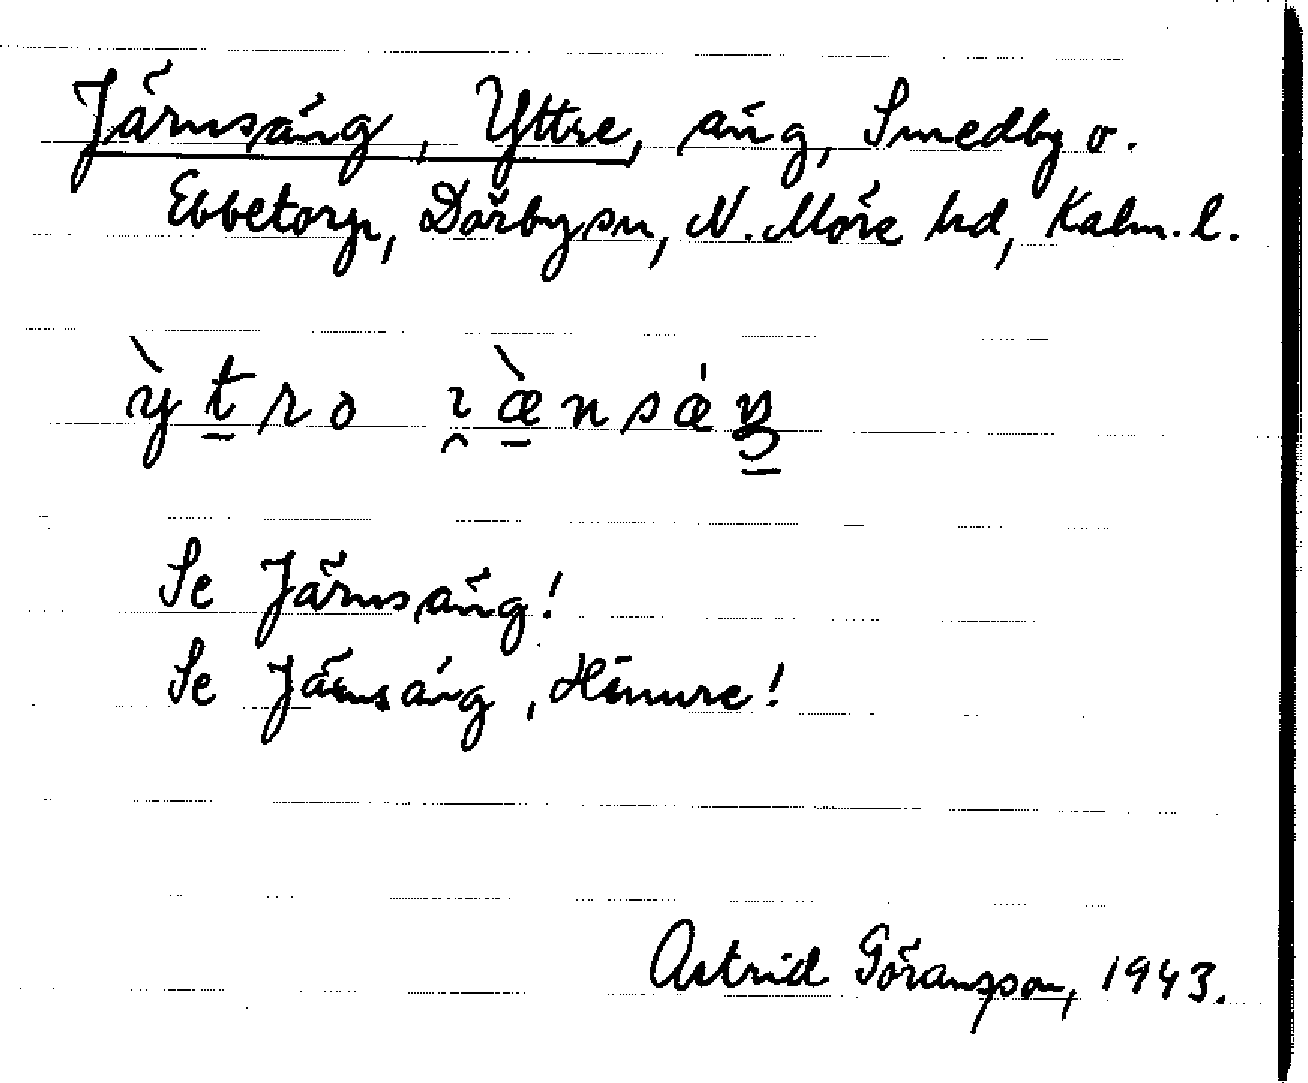 Järnsäng, Yttre, äng, Smedby o.
Ebbetorp, Dörbysn, N. Möre hd, Kalm. l.
ỳtro ı̯æ̀nsæ´ŋ
Se Järnsäng!
Se Järnsäng, Hinure!
Astrid Göransson, 1943.